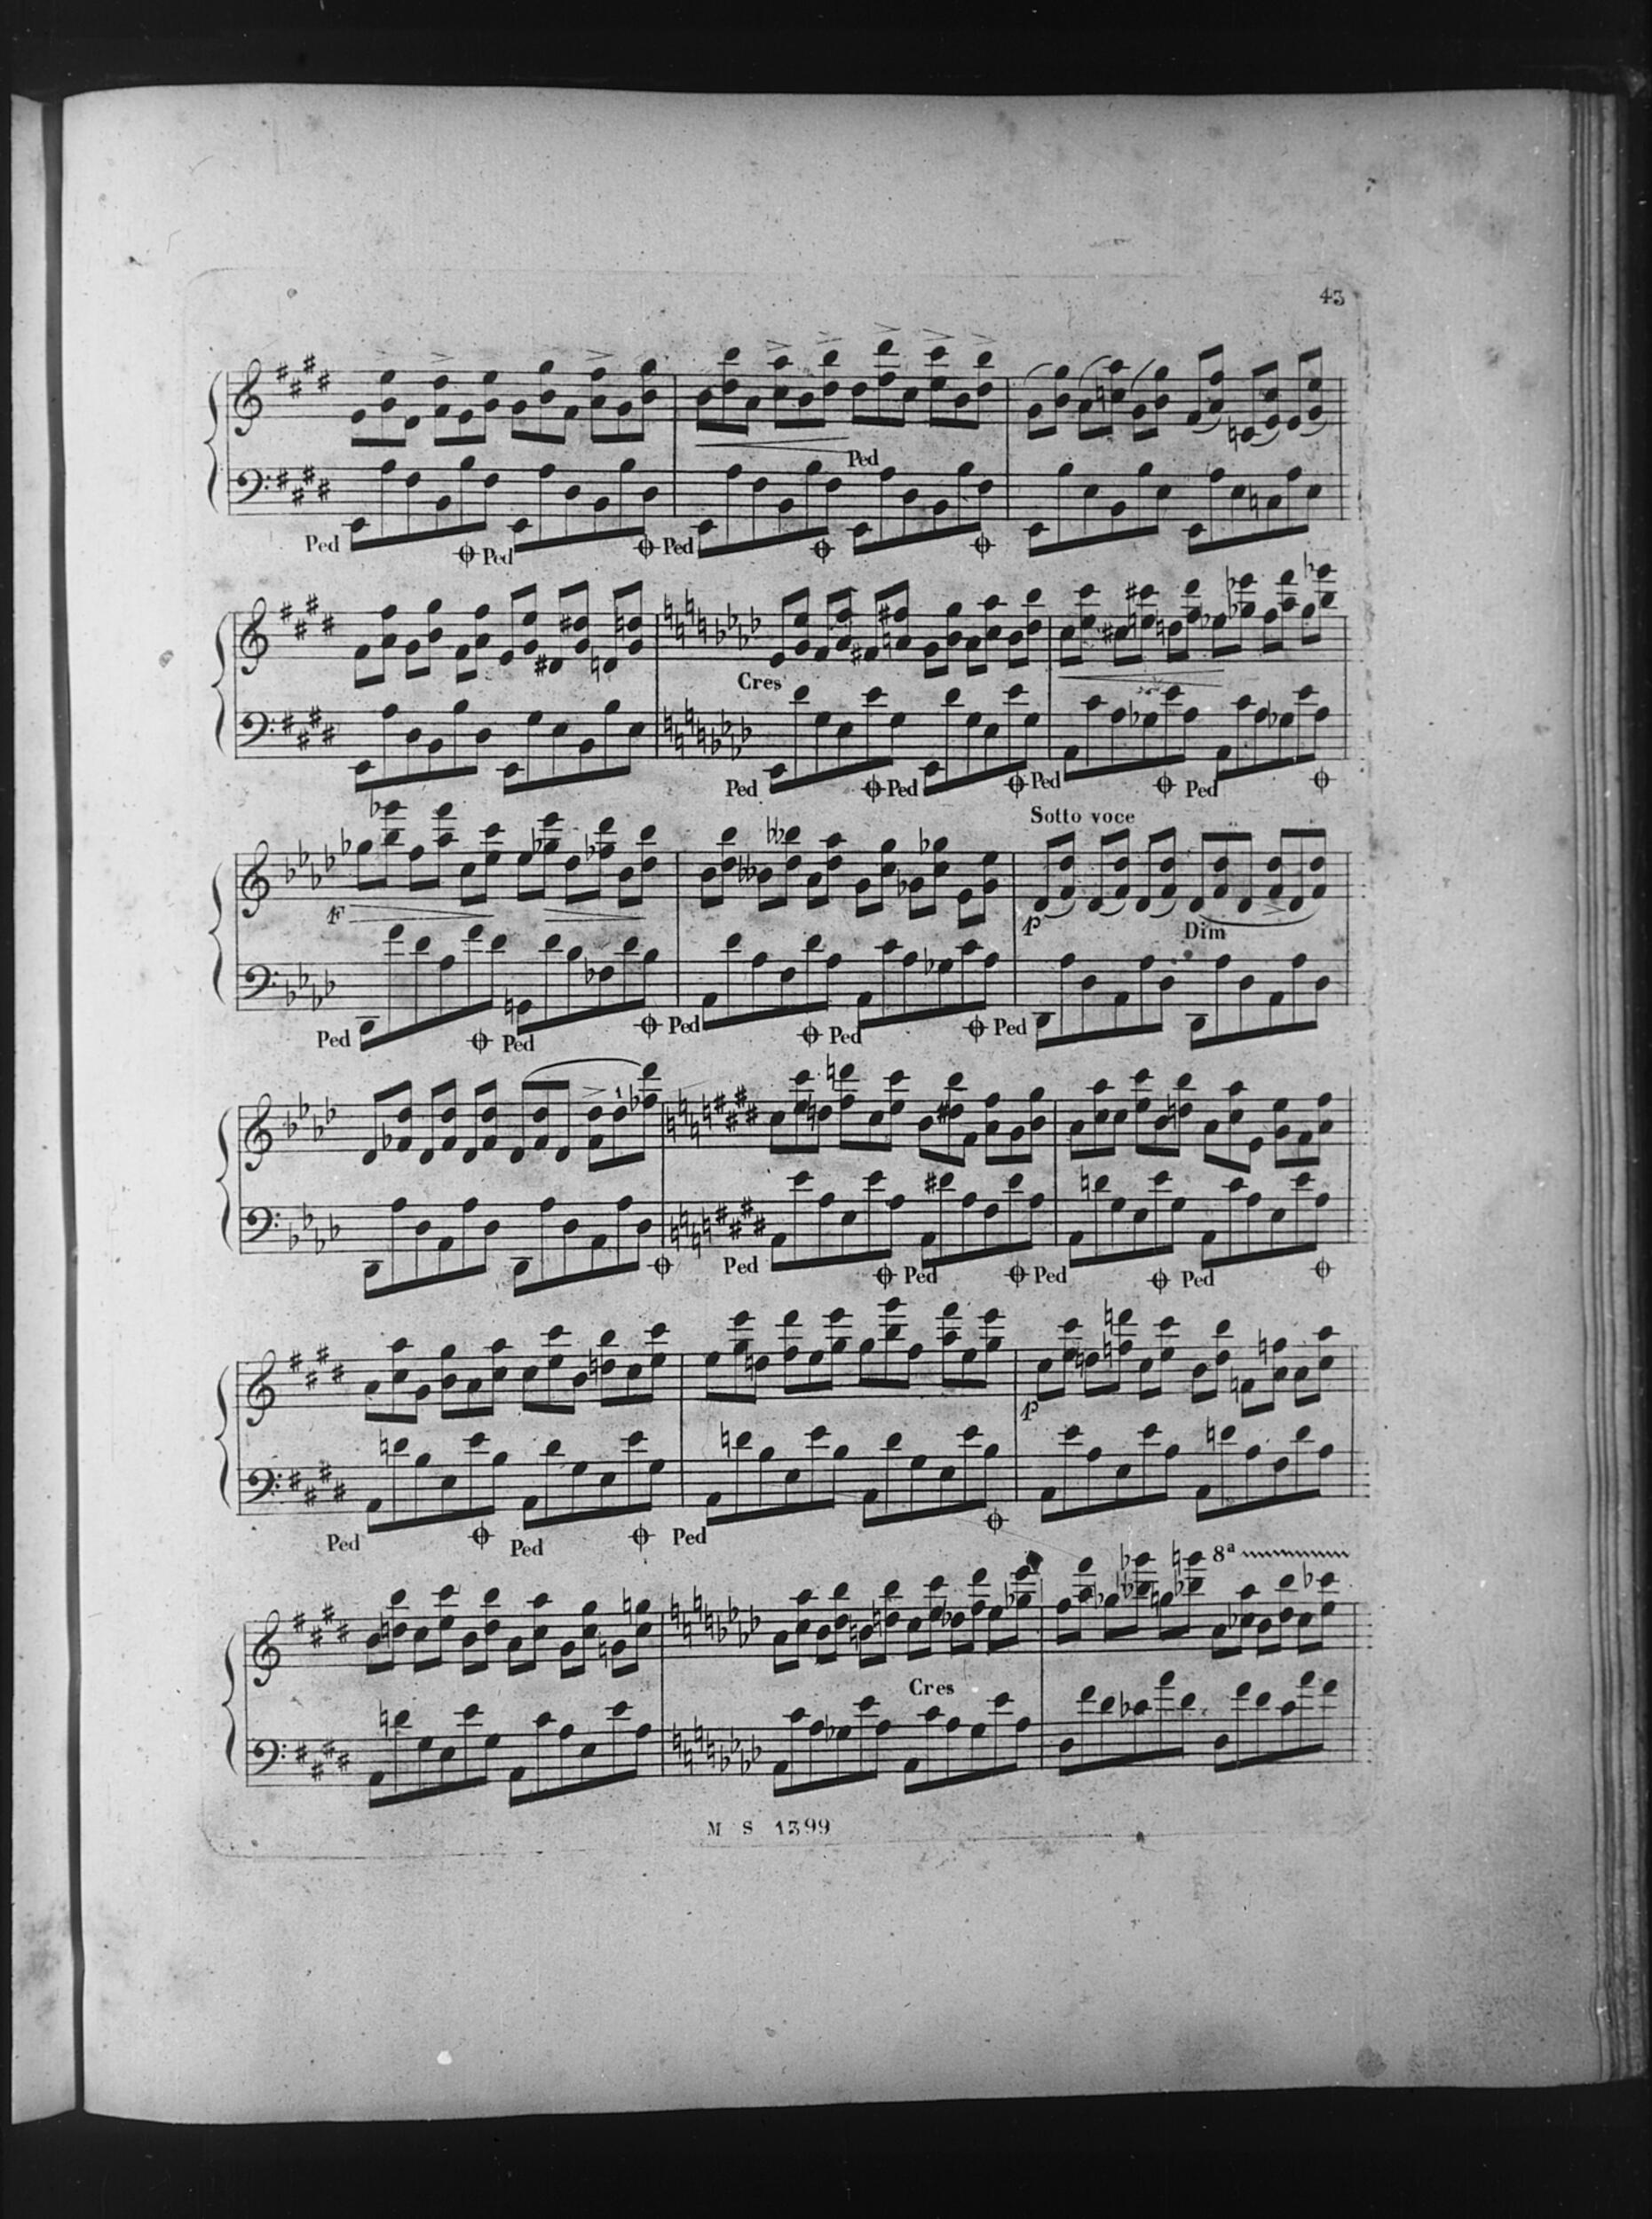 43
Ped
Ped Ped Ped
Cres
Ped Ped Ped Ped
Sotto voce
F
p
Dim
Ped Ped Ped Ped Ped
1
Ped Ped Ped Ped
p
Ped Ped Ped
8ª
Cres
M S 1399